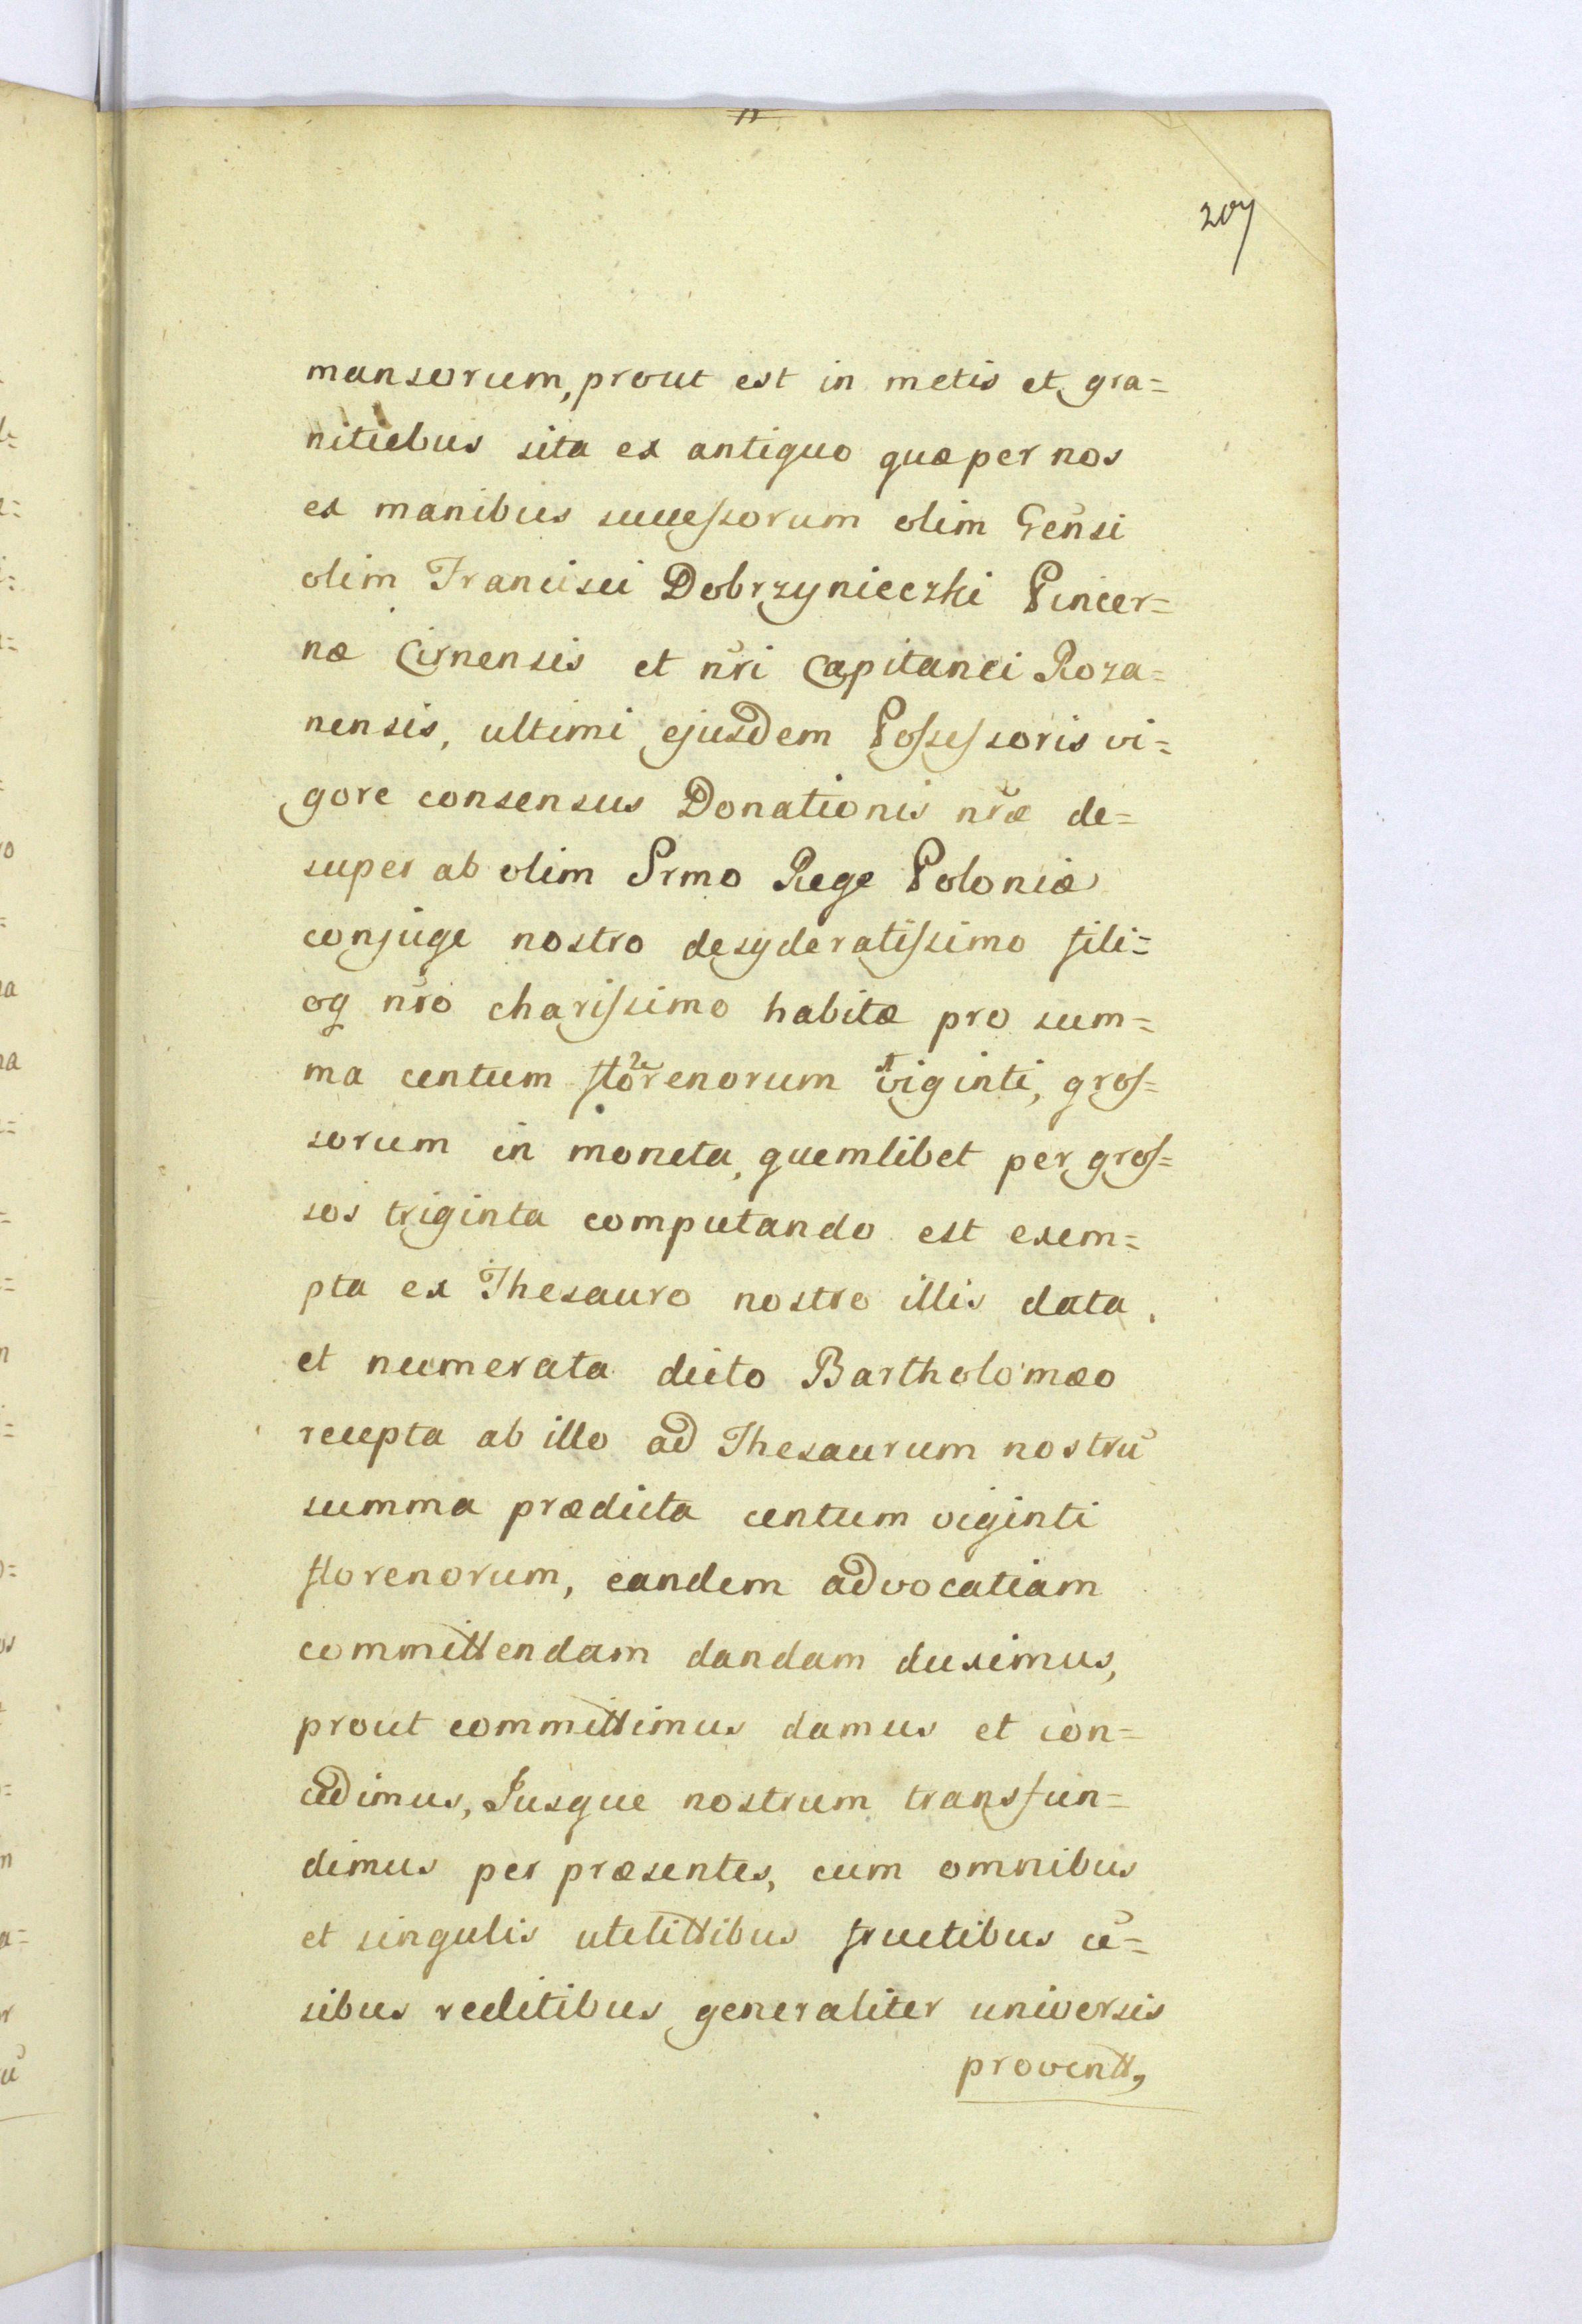 207
mansorum, prout est in metis et gra=
nitiebus sita ex antiquo quæ per nos
ex manibus succeſsorum olim Geñsi
olim Francisci Dobrzynieczki Pincer=
næ Cirnensis et nr̃i Capitanei Roza=
nensis, ultimi ejusdem Poſseſsoris vi=
gore consensus Donationis nr̃æ de=
super ab olim Srmo Rege Poloniæ
conjuge nostro desyderatiſsimo fili=
oq nr̃o chariſsimo habitæ pro sum=
ma centum florenorum viginti, groſ=
sorum in moneta, quemlibet per groſ=
sos triginta computando est exem=
pta ex Thesauro nostro illis data,
et numerata dicto Bartholomæo
recepta ab illo ad Thesaurum nostrũ
summa prædicta centum viginti
florenorum, eandem advocatiam
committendam dandam duximus,
prout committimus damus et con=
cedimus, Jusque nostrum transfun=
dimus per præsentes, cum omnibus
et singulis utilittibus fructibus cẽ=
sibus reditibus generaliter universis
proventt,